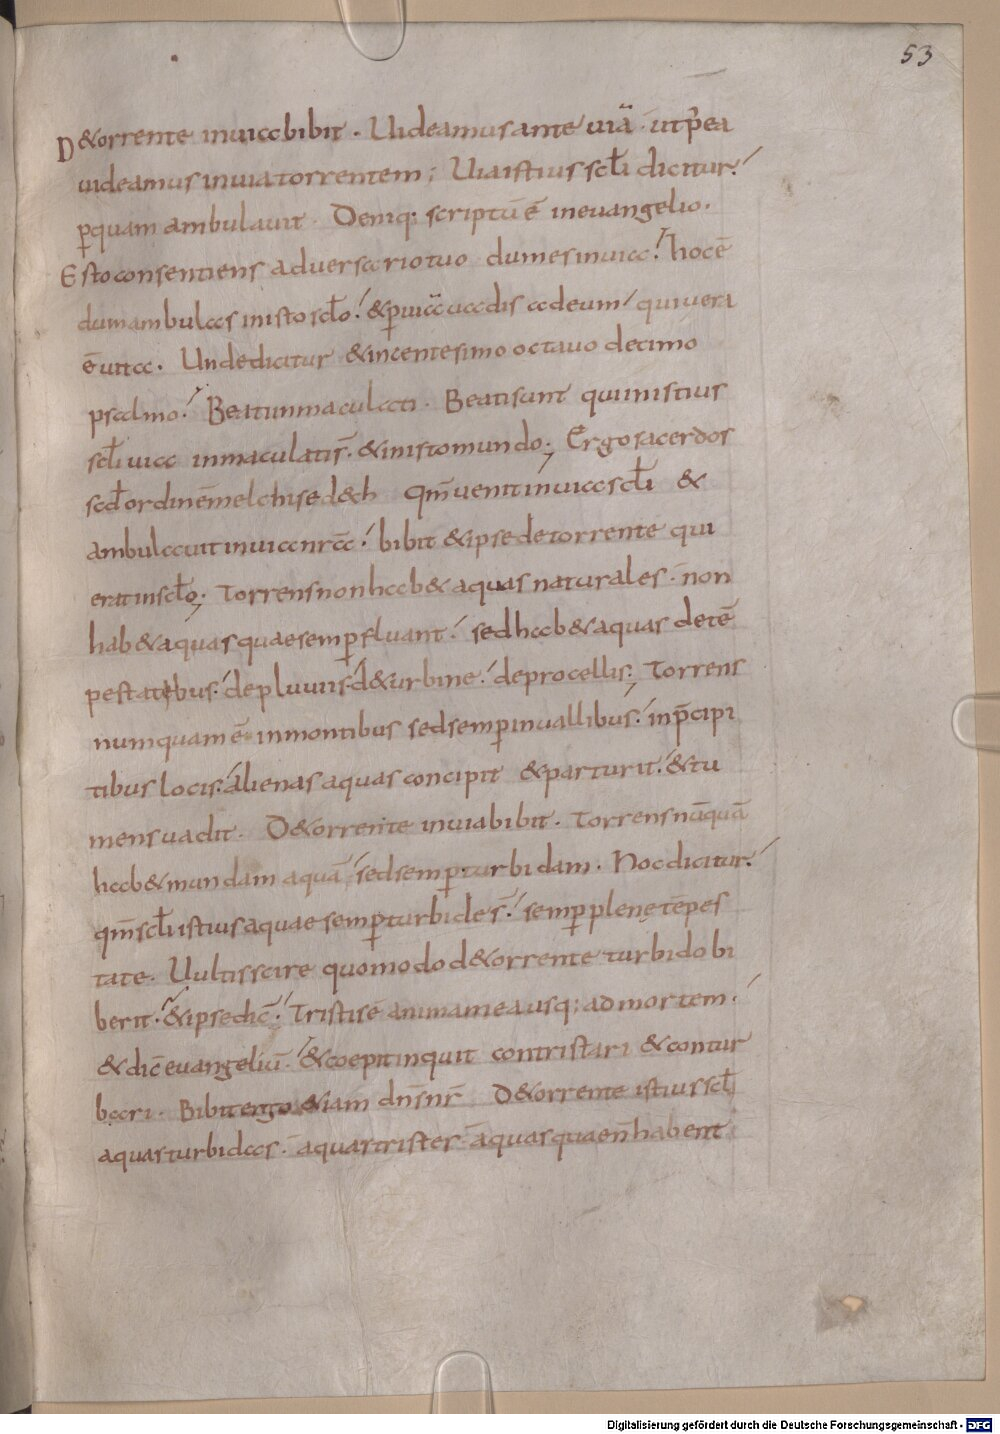 53
D&orrente inuia bibit. Uideamus ante uiā. ut p̄ea
uideamus inuia torrentem; Uia istius sc̄li dicitur.
p̱quam ambulauit. Deniq: scriptū ē in euangelio.
Esto consentiens aduersario tuo dum es inuia. hoc ē
dum ambulas in isto sc̄lo. & p̱ uiā uadis ad eum qui uera
ē uita. Unde dicitur & in centesimo octauo decimo
psalmo. Beati inmaculati. Beati sunt qui in istius
sc̄li uia inmaculati s̄. & in isto mundo; Ergo sacerdos
scd̄ ordinē melchised&h qm̄ uenit in uia sc̄li &
ambulauit in uia nr̄a. bibit & ipse de torrente qui
erat in sc̄lo; Torrens non hab& aquas naturales. non
hab& aquas quae semp̱ fluant. sed hab& aquas de tē
pestatibus. de pluuiis. d& urbine. de procellis; Torrens
numquam ē in montibus sed semp̱ in uallibus. in p̄cipi
tibus locis. alienas aquas concipit & parturit. & tu
mens uadit. D&orrente in uia bibit. Torrens nūquā
hab& mundam aquā. sed semp̱ turbidam. Hoc dicitur.
qm̄ sc̄li istius aquae semp̱ turbide s̄. semp̱ plenę tēpes
tate. Uultis scire quomodo d&orrente turbido bi
berit. & ipse dic̄. Tristis ē anima mea usq; ad mortem.
& dic̄ euangeliū. & coepit inquit contristari & contur
bari. Bibit ergo &iam dn̄s nr̄ D&orrente istius sc̄li
aquas turbidas. aquas tristes. aquas quae n̄ habent
Digitalisierung gefördert durch die Deutsche Forschungsgemeinschaft - DFG